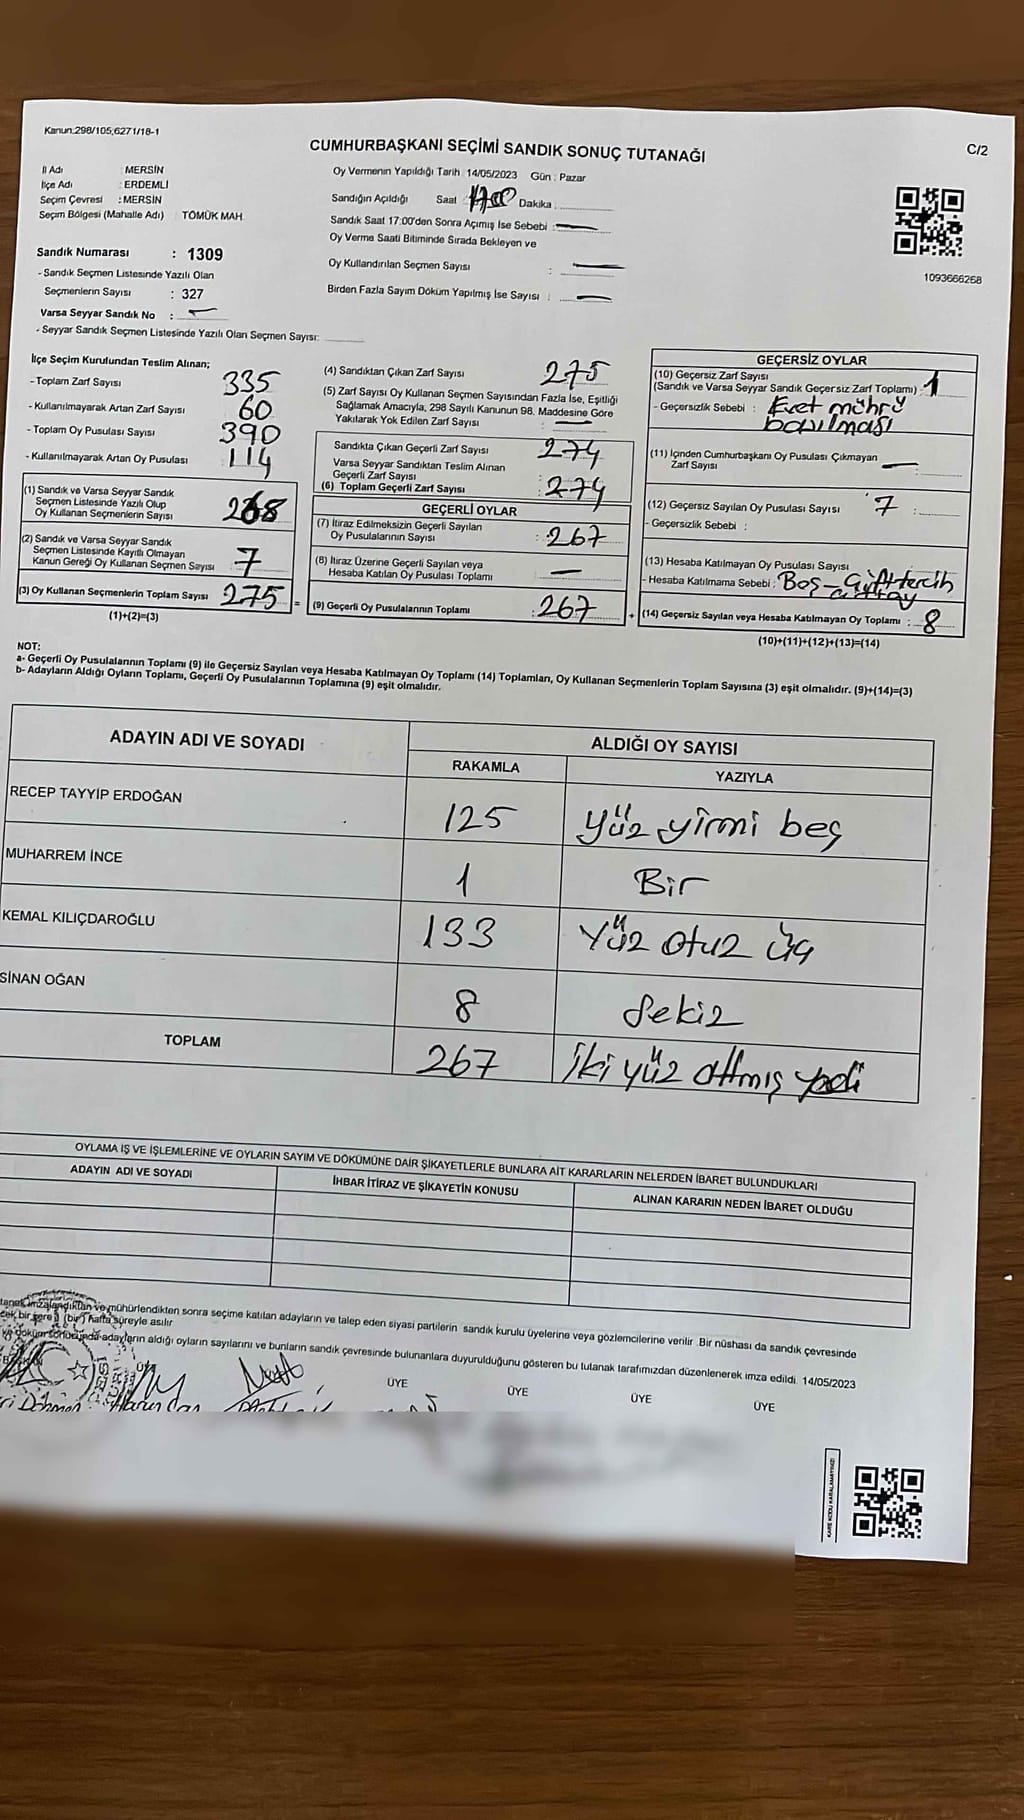 Kanun:298/105;6271/18-1
CUMHURBAŞKANI SEÇİMİ SANDIK SONUÇ TUTANAĞI
C/2
İl Adı : MERSİN
İlçe Adı : ERDEMLİ
Seçim Çevresi : MERSİN
Seçim Bölgesi (Mahalle Adı) : TÖMÜK MAH.
Oy Vermenin Yapıldığı Tarih :14/05/2023 Gün : Pazar
Sandığın Açıldığı Saat : 1700 Dakika :
Sandık Saat 17:00'den Sonra Açımış İse Sebebi :
Oy Verme Saati Bitiminde Sırada Bekleyen ve
Oy Kullandırılan Seçmen Sayısı :
Birden Fazla Sayım Döküm Yapılmış İse Sayısı :
1093666268
Sandık Numarası : 1309
- Sandık Seçmen Listesinde Yazılı Olan
Seçmenlerin Sayısı : 327
Varsa Seyyar Sandık No :
- Seyyar Sandık Seçmen Listesinde Yazılı Olan Seçmen Sayısı:
İlçe Seçim Kurulundan Teslim Alınan;
- Toplam Zarf Sayısı 335
- Kullanılmayarak Artan Zarf Sayısı 60
- Toplam Oy Pusulası Sayısı 390
- Kullanılmayarak Artan Oy Pusulası 114
(1) Sandık ve Varsa Seyyar Sandık
Seçmen Listesinde Yazılı Olup
Oy Kullanan Seçmenlerin Sayısı 268
(2) Sandık ve Varsa Seyyar Sandık
Seçmen Listesinde Kayıtlı Olmayan
Kanun Gereği Oy Kullanan Seçmen Sayısı 7
(3) Oy Kullanan Seçmenlerin Toplam Sayısı 275
(1)+(2)=(3)
=
(4) Sandıktan Çıkan Zarf Sayısı 275
(5) Zarf Sayısı Oy Kullanan Seçmen Sayısından Fazla İse, Eşitliği
Sağlamak Amacıyla, 298 Sayılı Kanunun 98. Maddesine Göre
Yakılarak Yok Edilen Zarf Sayısı :
Sandıkta Çıkan Geçerli Zarf Sayısı : 274
Varsa Seyyar Sandıktan Teslim Alınan
Geçerli Zarf Sayısı
(6) Toplam Geçerli Zarf Sayısı : 274
GEÇERLİ OYLAR
(7) İtiraz Edilmeksizin Geçerli Sayılan
Oy Pusulalarının Sayısı : 267
(8) İtiraz Üzerine Geçerli Sayılan veya
Hesaba Katılan Oy Pusulası Toplamı
(9) Geçerli Oy Pusulalarının Toplamı : 267
+
GEÇERSİZ OYLAR
(10) Geçersiz Zarf Sayısı
(Sandık ve Varsa Seyyar Sandık Geçersiz Zarf Toplamı) : 1
- Geçersizlik Sebebi : Evet mührü
basılması
(11) İçinden Cumhurbaşkanı Oy Pusulası Çıkmayan
Zarf Sayısı :
(12) Geçersiz Sayılan Oy Pusulası Sayısı : 7
- Geçersizlik Sebebi :
(13) Hesaba Katılmayan Oy Pusulası Sayısı
- Hesaba Katılmama Sebebi : Boş - Çift tercih
(14) Geçersiz Sayılan veya Hesaba Katılmayan Oy Toplamı : 8
(10)+(11)+(12)+(13)=(14)
NOT:
a- Geçerli Oy Pusulalarının Toplamı (9) ile Geçersiz Sayılan veya Hesaba Katılmayan Oy Toplamı (14) Toplamları, Oy Kullanan Seçmenlerin Toplam Sayısına (3) eşit olmalıdır. (9)+(14)=(3)
b- Adayların Aldığı Oyların Toplamı, Geçerli Oy Pusulalarının Toplamına (9) eşit olmalıdır.
ADAYIN ADI VE SOYADI
ALDIĞI OY SAYISI
RAKAMLA
YAZIYLA
RECEP TAYYİP ERDOĞAN 125 yüz yirmi beş
MUHARREM İNCE 1 Bir
KEMAL KILIÇDAROĞLU 133 yüz otuz üç
SİNAN OĞAN 8 Sekiz
TOPLAM 267 İki yüz altmış yedi
OYLAMA İŞ VE İŞLEMLERİNE VE OYLARIN SAYIM VE DÖKÜMÜNE DAİR ŞİKAYETLERLE BUNLARA AİT KARARLARIN NELERDEN İBARET BULUNDUKLARI
ADAYIN ADI VE SOYADI
İHBAR İTİRAZ VE ŞİKAYETİN KONUSU
ALINAN KARARIN NEDEN İBARET OLDUĞU
imzalandıktan ve mühürlendikten sonra seçime katılan adayların ve talep eden siyasi partilerin sandık kurulu üyelerine veya gözlemcilerine verilir. Bir nüshası da sandık çevresinde
(bir) hafta süreyle asılır
döküm sonucunda adayların aldığı oyların sayılarını ve bunların sandık çevresinde bulunanlara duyurulduğunu gösteren bu tutanak tarafımızdan düzenlenerek imza edildi. 14/05/2023
ÜYE
ÜYE
ÜYE
ÜYE
ÜYE
KARE KODU KARALAMAYINIZ!